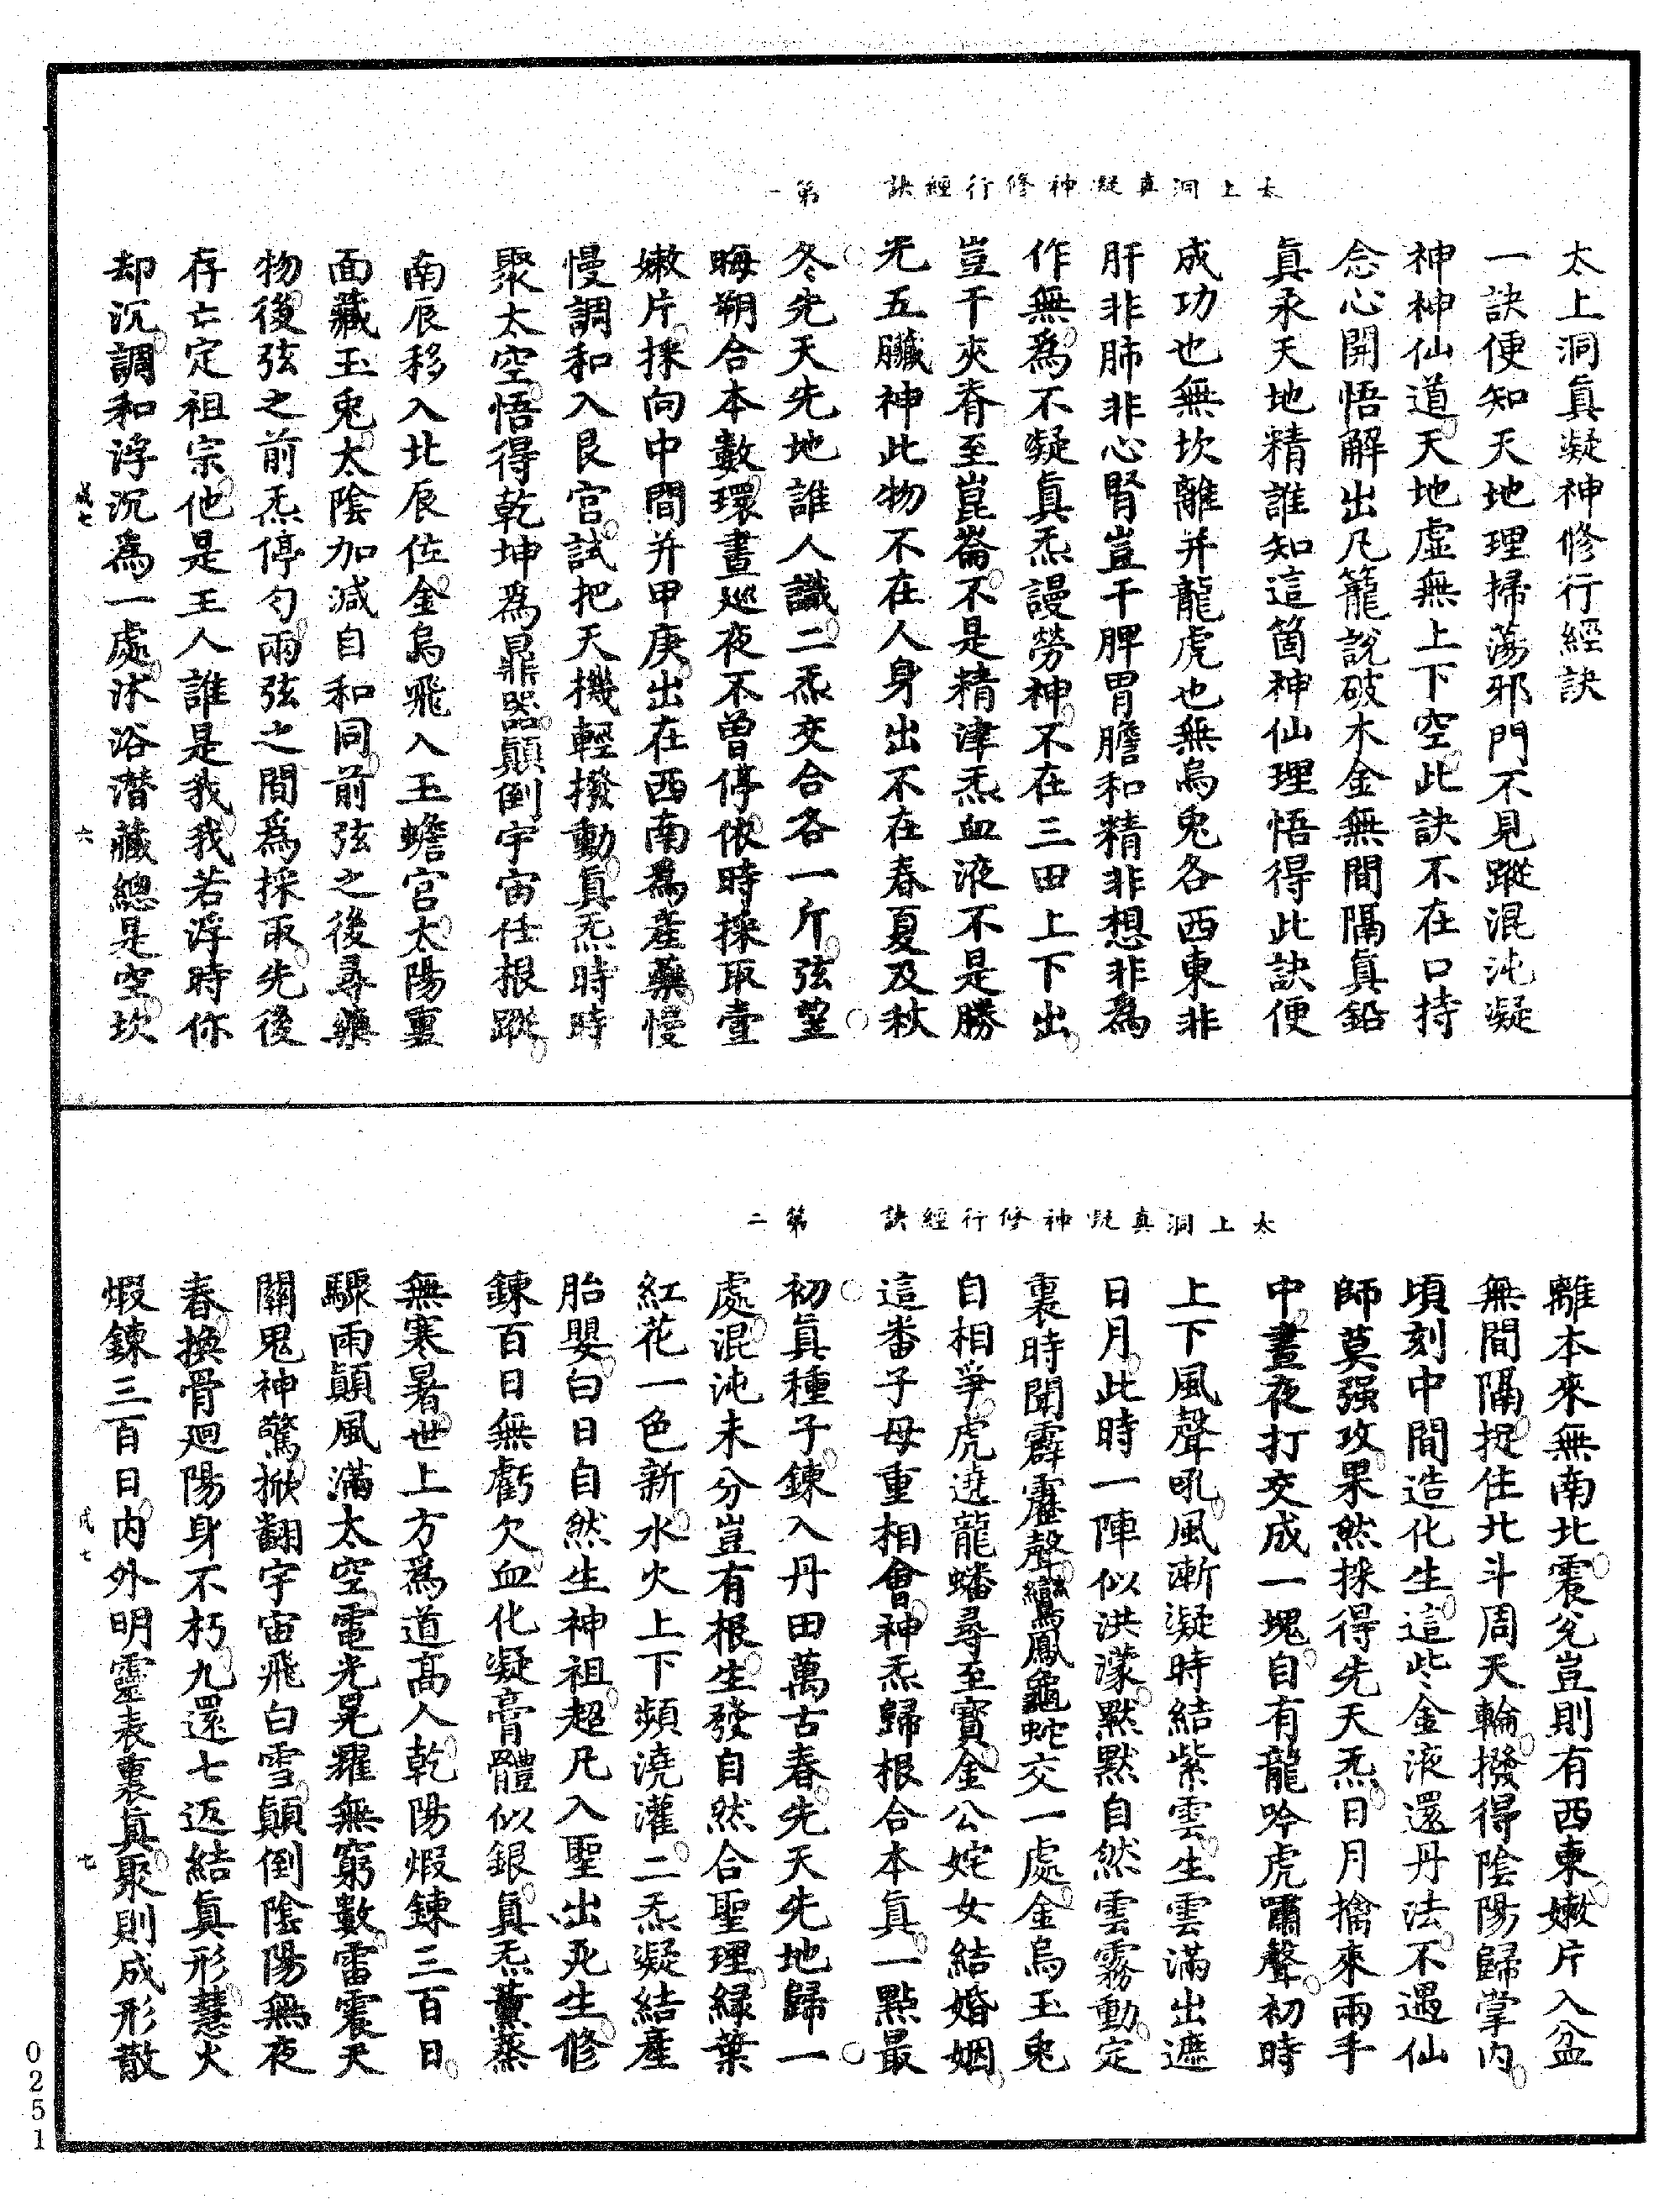 太上洞真凝神修行經訣　第一
太上洞真凝神修行經訣
一訣便知天地理掃蕩邪門不見蹤混沌凝
神神仙道天地虛無上下空此訣不在口持
念心開悟解出凡籠說破木金無間隔真鉛
真汞天地精誰知這箇神仙理悟得此訣便
成功也無坎離并龍虎也無烏兎各西東非
肝非肺非心腎豈干脾胃膽和精非想非爲
作無爲不凝真炁謾勞神不在三田上下出
豈干夾脊至崑崙不是精津炁血液不是勝
光五臟神此物不在人身出不在春夏及秋
冬先天先地誰人識二炁交合各一斤弦望
晦朔合本數環晝巡夜不曾停依時採取壹
嫩片採向中間并甲庚出在西南爲產藥慢
慢調和入艮宮試把天機輕撥動真炁時時
聚太空悟得乾坤爲鼎器顛倒宇宙任根蹤
南辰移入北辰佐金烏飛入玉蟾宮太陽重
面藏玉兎太陰加減自和同前弦之後尋藥
物後弦之前炁停勻兩弦之間爲採取先後
存亡定祖宗他是王人誰是我我若浮時你
却沉調和浮沉爲一處沐浴潛藏總是空坎
六
太上洞真凝神修行經訣　第二
離本來無南北震兌豈則有西東嫩片入盆
無間隔捉住北斗周天輪撥得陰陽歸掌內
頃刻中間造化生這些金液還丹法不遇仙
師莫强攻果然採得先天炁日月擒來兩手
中晝夜打交成一塊自有龍吟虎嘯聲初時
上下風聲吼風漸凝時結紫雲生雲滿出遮
日月此時一陣似洪濛默默自然雲霧動定
裏時聞霹靂聲鸞鳳龜蛇交一處金烏玉兎
自相爭虎遶龍蟠尋至寶金公姹女結婚姻
這番子母重相會神炁歸根合本真一點最
初真種子鍊入丹田萬古春先天先地歸一
處混沌未分豈有根生發自然合聖理緑葉
紅花一色新水火上下頻澆灌二炁凝結產
胎嬰白日自然生神祖超凡入聖出死生修
鍊百日無虧欠血化凝膏體似銀真炁薰蒸
無寒暑世上方爲道高人乾陽煆鍊三百日
驟雨顛風滿太空電光晃耀無窮數雷震天
關鬼神驚掀翻宇宙飛白雪顛倒陰陽無夜
春換骨迴陽身不朽九還七返結真形慧火
煆鍊三百日內外明靈表裏真聚則成形散
七
0251